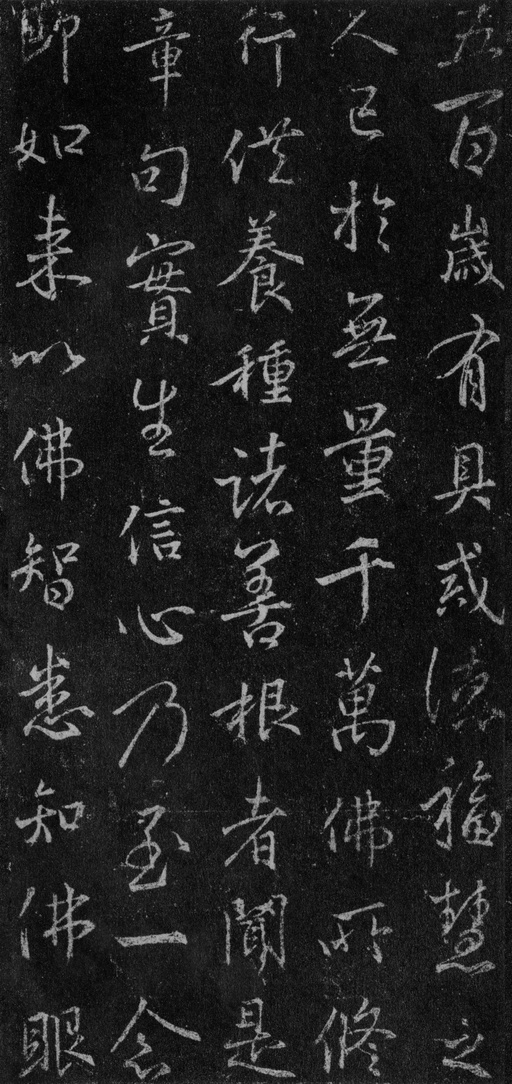 五百歲有具戒德福慧之
人已於無量千萬佛所脩
行供養種諸善根者聞是
章句實生信心乃至一念
即如来以佛智悉知佛眼